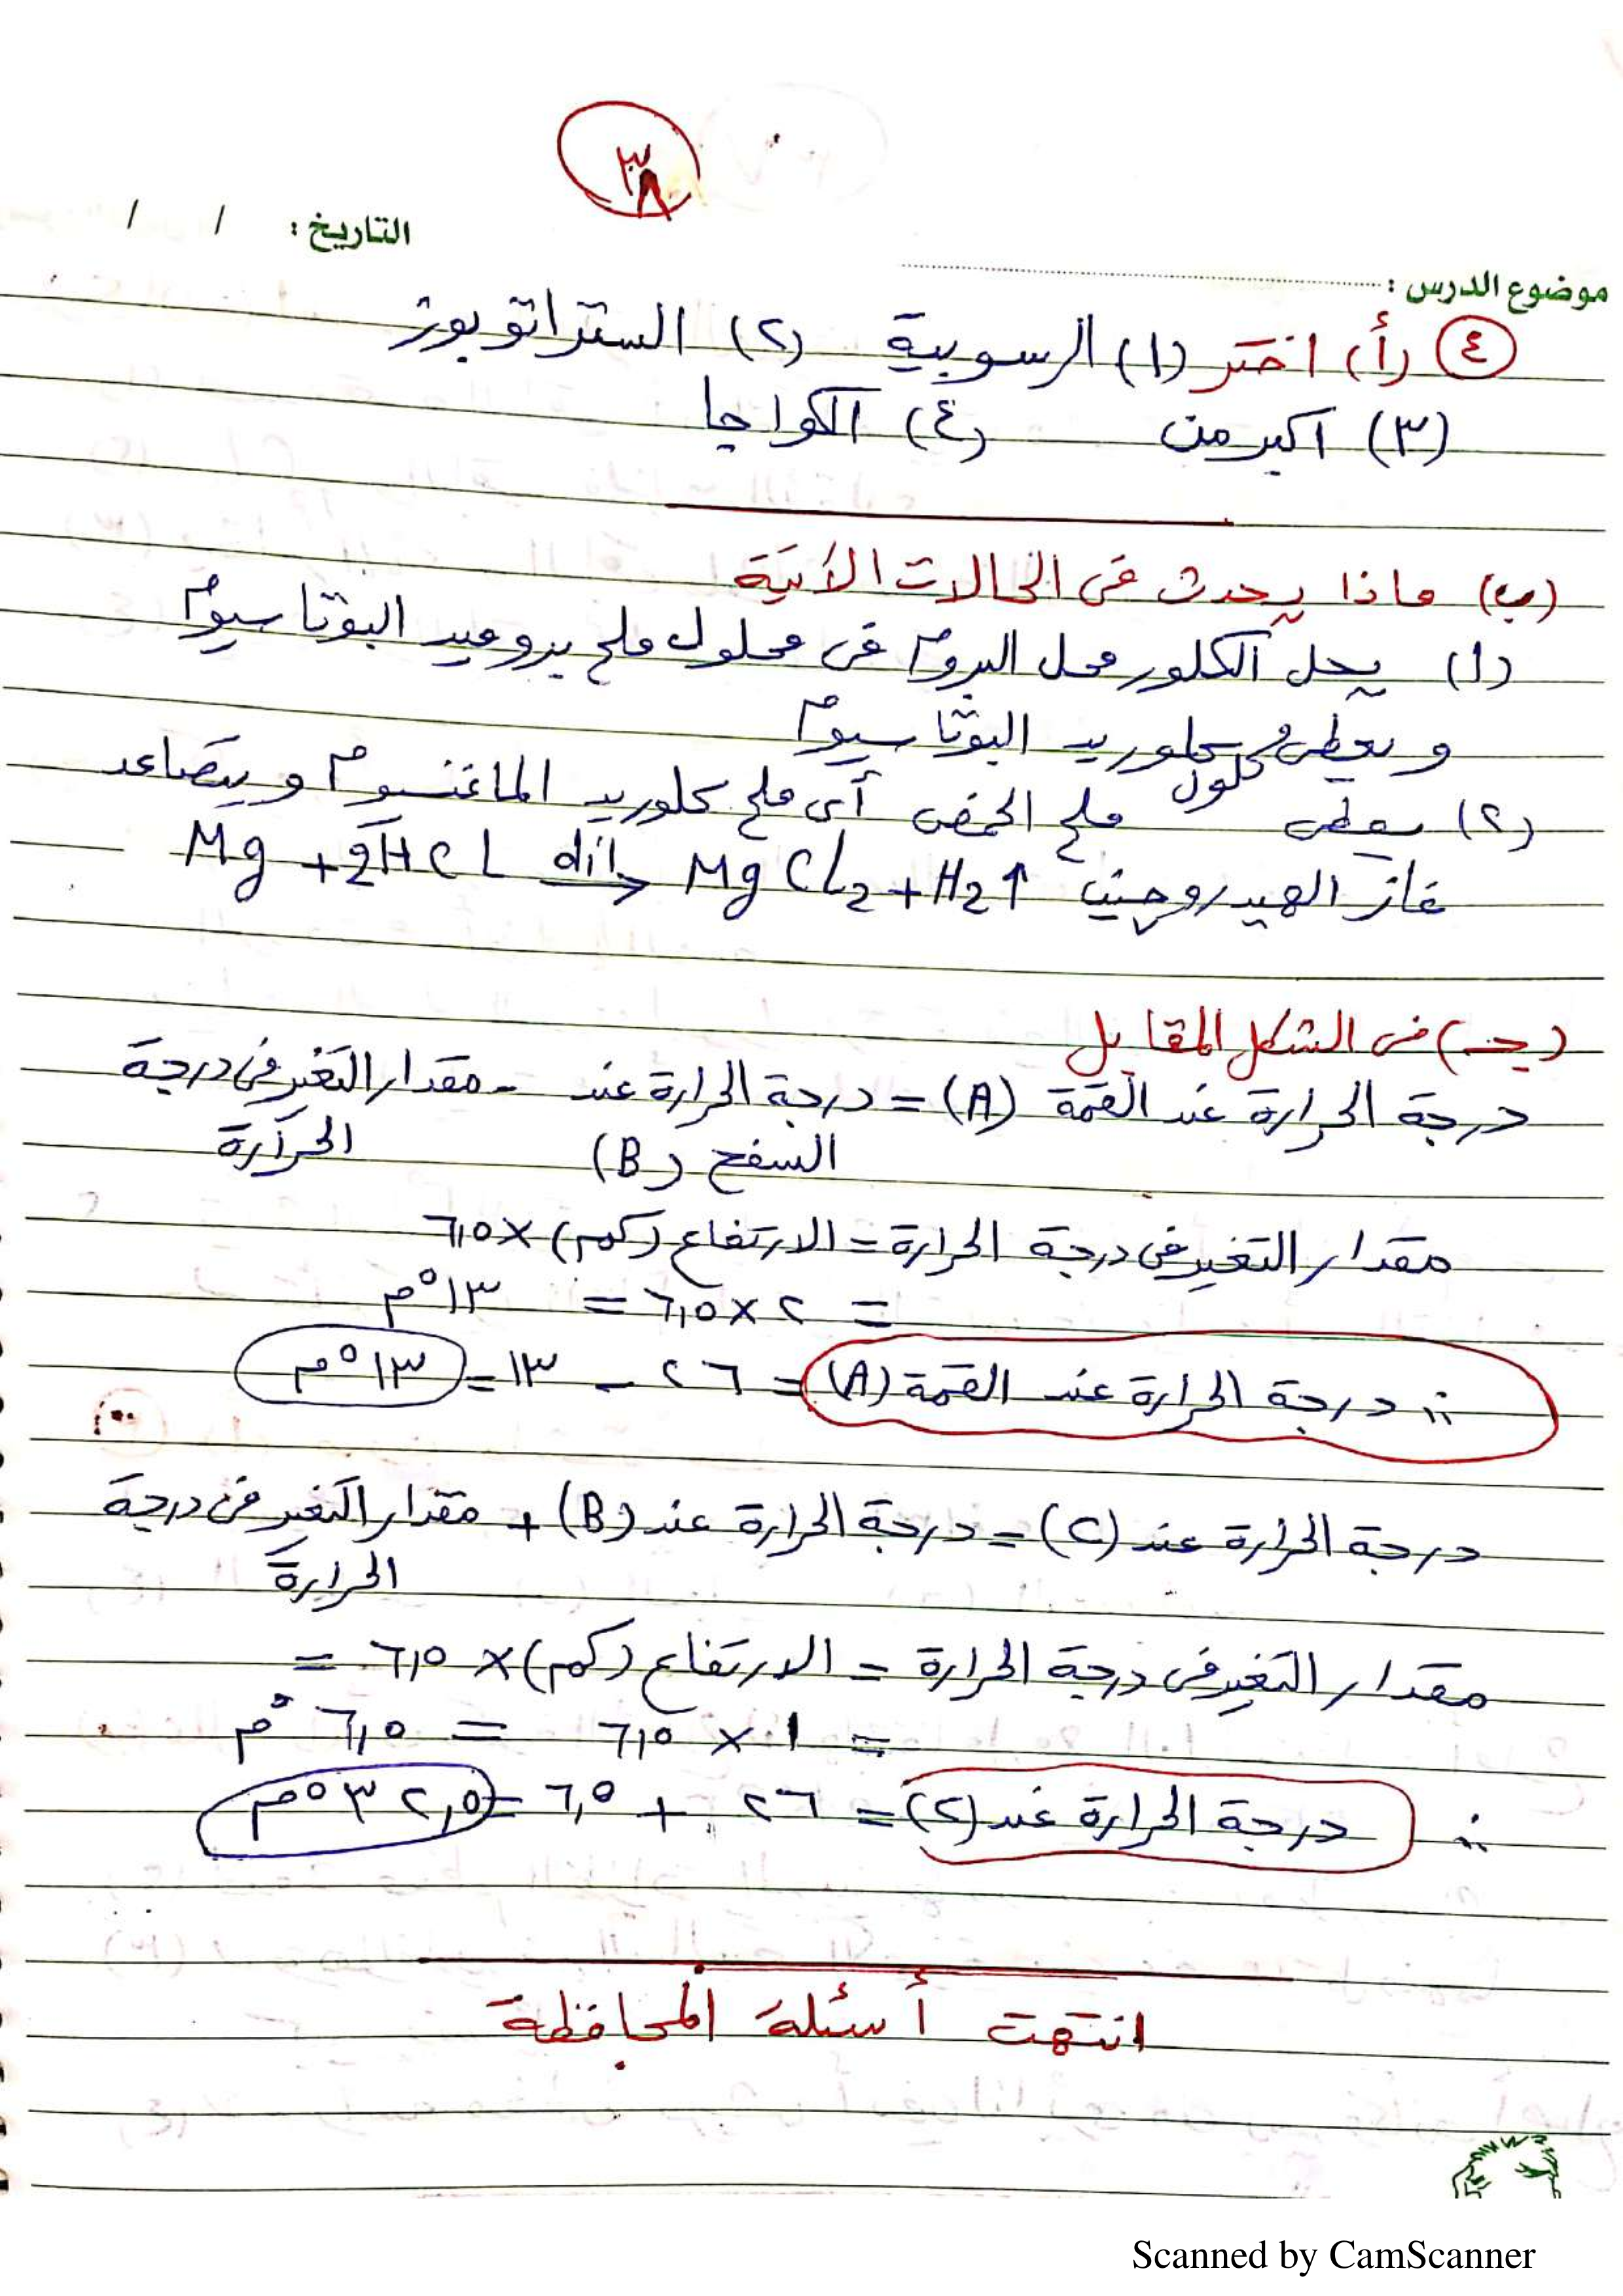 ٣٨
التاريخ : / /
موضوع الدرس :
٤ (أ) اختر (١) الرسوبية (٢) الستراتوبوز
(٣) أكبر من (٤) الكواجا
(ب) ماذا يحدث فى الحالات الآتية
(١) يحل الكلور محل البروم فى محلول ملح بروميد البوتاسيوم
ويعطى محلول كلوريد البوتاسيوم
(٢) يعطى ملح الحمض أى ملح كلوريد الماغنسيوم ويتصاعد
غاز الهيدروجين Mg + 2HCL dil→ MgCl2 + H2↑
(جـ) فى الشكل المقابل
درجة الحرارة عند القمة (A) = درجة الحرارة عند - مقدار التغير فى درجة
السفح (B) الحرارة
مقدار التغير فى درجة الحرارة = الارتفاع (كم) × ٦,٥
= ٢ × ٦,٥ = ١٣°م
∴ درجة الحرارة عند القمة (A) = ٢٦ - ١٣ = ١٣°م
درجة الحرارة عند (C) = درجة الحرارة عند (B) + مقدار التغير فى درجة
الحرارة
مقدار التغير فى درجة الحرارة = الارتفاع (كم) × ٦,٥ =
= ١ × ٦,٥ = ٦,٥°م
∴ درجة الحرارة عند (C) = ٢٦ + ٦,٥ = ٣٢,٥°م
انتهت أسئلة المحافظة
Scanned by CamScanner